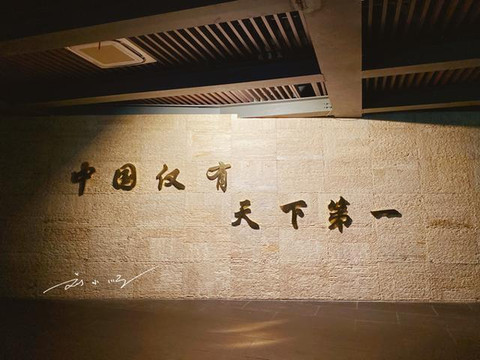 中国仅有
天下第一